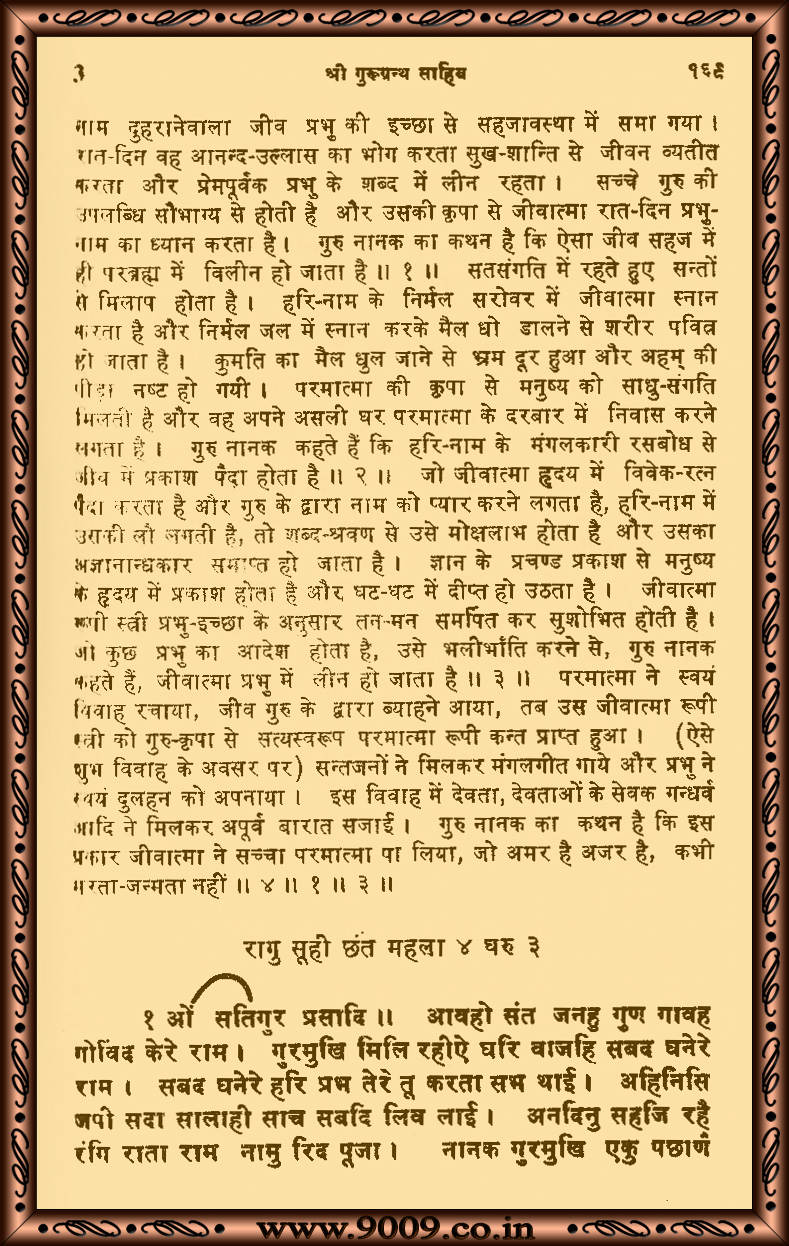 3 श्री गुरूग्रन्थ साहिब १६९
नाम दुहरानेवाला जीव प्रभु की इच्छा से सहजावस्था में समा गया ।
रात-दिन वह आनन्द-उल्लास का भोग करता सुख-शान्ति से जीवन व्यतीत
करता और प्रेमपूर्वक प्रभु के शब्द में लीन रहता । सच्चे गुरु की
उपलब्धि सौभाग्य से होती है और उसकी कृपा से जीवात्मा रात-दिन प्रभु-
नाम का ध्यान करता है । गुरु नानक का कथन है कि ऐसा जीव सहज में
ही परब्रह्म में विलीन हो जाता है ॥ १ ॥ सतसंगति में रहते हुए सन्तों
से मिलाप होता है । हरि-नाम के निर्मल सरोवर में जीवात्मा स्नान
करता है और निर्मल जल में स्नान करके मैल धो डालने से शरीर पवित्र
हो जाता है । कुमति का मैल धुल जाने से भ्रम दूर हुआ और अहम् की
पीड़ा नष्ट हो गयी । परमात्मा की कृपा से मनुष्य को साधु-संगति
मिलती है और वह अपने असली घर परमात्मा के दरबार में निवास करने
लगता है । गुरु नानक कहते हैं कि हरि-नाम के मंगलकारी रसबोध से
जीव में प्रकाश पैदा होता है ॥ २ ॥ जो जीवात्मा हृदय में विवेक-रत्न
पैदा करता है और गुरु के द्वारा नाम को प्यार करने लगता है, हरि-नाम में
उसकी लौ लगती है, तो शब्द-श्रवण से उसे मोक्षलाभ होता है और उसका
अज्ञानान्धकार समाप्त हो जाता है । ज्ञान के प्रचण्ड प्रकाश से मनुष्य
के हृदय में प्रकाश होता है और घट-घट में दीप्त हो उठता है । जीवात्मा
रूपी स्त्री प्रभु-इच्छा के अनुसार तन-मन समर्पित कर सुशोभित होती है ।
जो कुछ प्रभु का आदेश होता है, उसे भलीभाँति करने से, गुरु नानक
कहते हैं, जीवात्मा प्रभु में लीन हो जाता है ॥ ३ ॥ परमात्मा ने स्वयं
विवाह रचाया, जीव गुरु के द्वारा ब्याहने आया, तब उस जीवात्मा रूपी
स्त्री को गुरु-कृपा से सत्यस्वरूप परमात्मा रूपी कन्त प्राप्त हुआ । (ऐसे
शुभ विवाह के अवसर पर) सन्तजनों ने मिलकर मंगलगीत गाये और प्रभु ने
स्वयं दुलहन को अपनाया । इस विवाह में देवता, देवताओं के सेवक गन्धर्व
आदि ने मिलकर अपूर्व बारात सजाई । गुरु नानक का कथन है कि इस
प्रकार जीवात्मा ने सच्चा परमात्मा पा लिया, जो अमर है अजर है, कभी
मरता-जन्मता नहीं ॥ ४ ॥ १ ॥ ३ ॥
रागु सूही छंत महला ४ घरु ३
१ ओं सतिगुर प्रसादि ॥ आवहो संत जनहु गुण गावह
गोविंद केरे राम । गुरमुखि मिलि रहीऐ घरि वाजहि सबद घनेरे
राम । सबद घनेरे हरि प्रभ तेरे तू करता सभ थाई । अहिनिसि
जपी सदा सालाही साच सबदि लिव लाई । अनदिनु सहजि रहै
रंगि राता राम नामु रिद पूजा । नानक गुरमुखि एकु पछाणै
www.9009.co.in